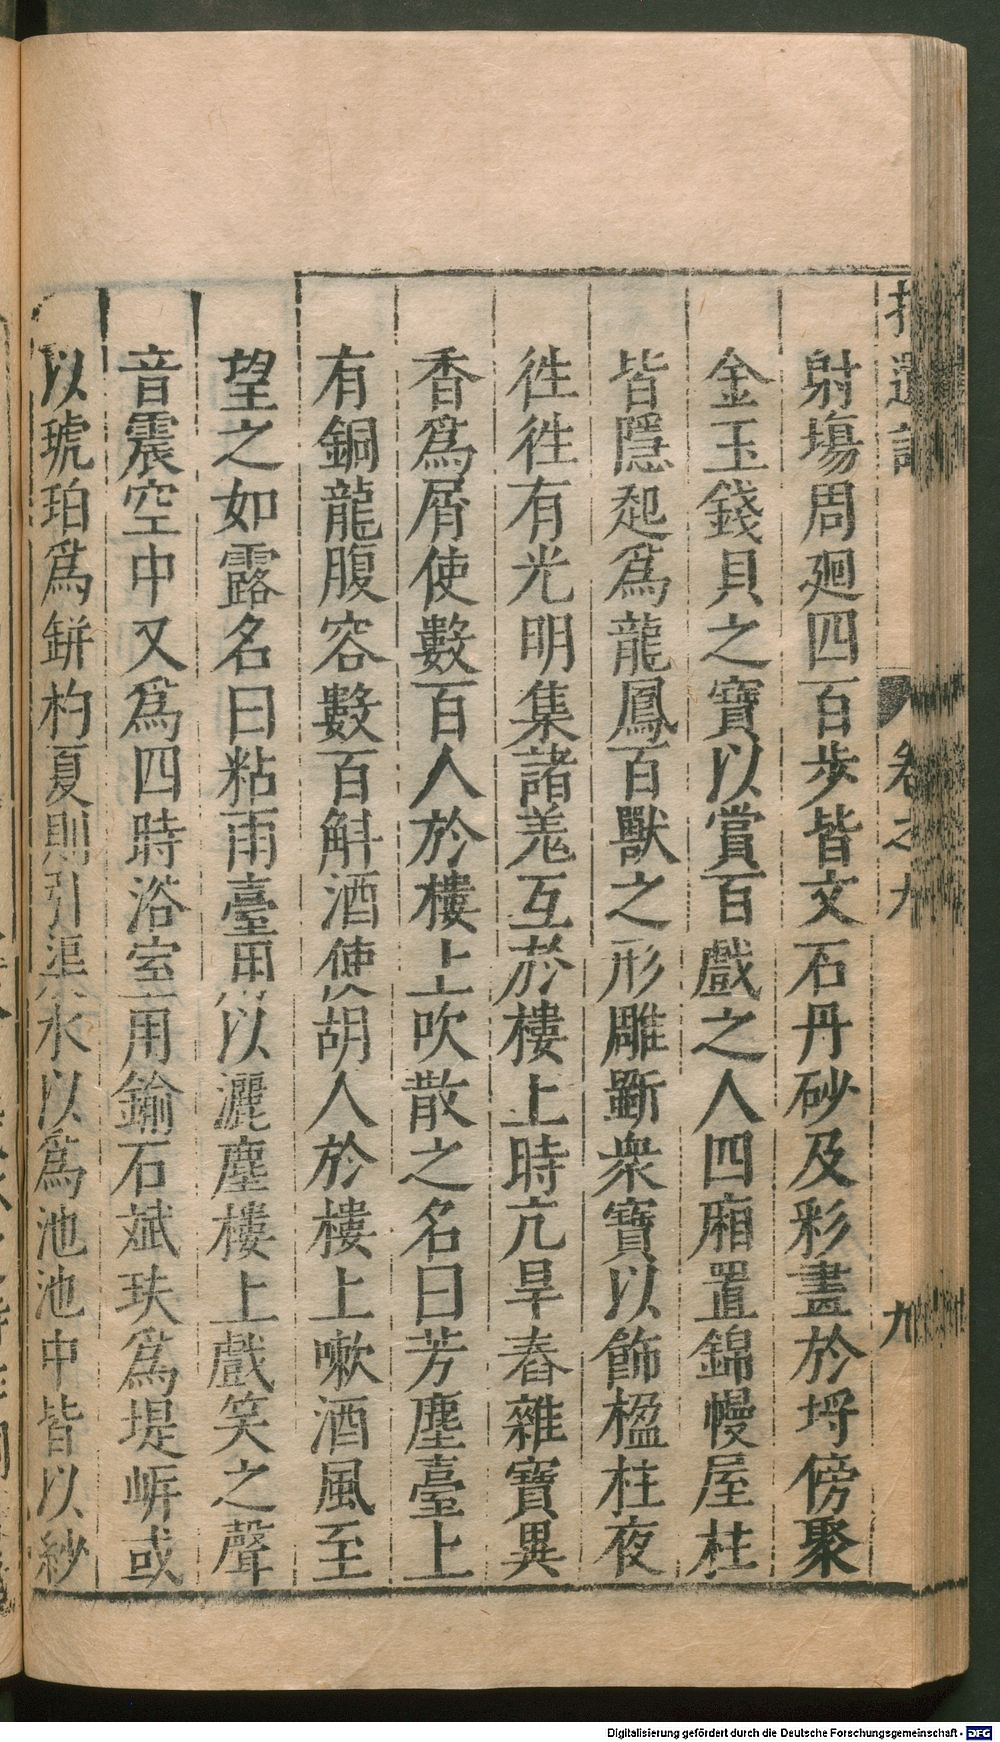 拾遺記
卷之九
九
射場周廻四百步皆文石丹砂及彩畫於埒傍聚
金玉錢貝之寶以賞百戲之人四廂置錦幔屋柱
皆隱起爲龍鳳百獸之形雕斲衆寶以飾楹柱夜
徃徃有光明集諸羗互於樓上時亢旱舂雜寶異
香爲屑使數百人於樓上吹散之名曰芳塵臺上
有銅龍腹容數百斛酒使胡人於樓上嗽酒風至
望之如露名曰粘雨臺用以灑塵樓上戲笑之聲
音震空中又爲四時浴室用鍮石珷玞爲堤㟁或
以琥珀爲缾杓夏則引渠水以爲池池中皆以紗
Digitalisierung gefördert durch die Deutsche Forschungsgemeinschaft - DFG